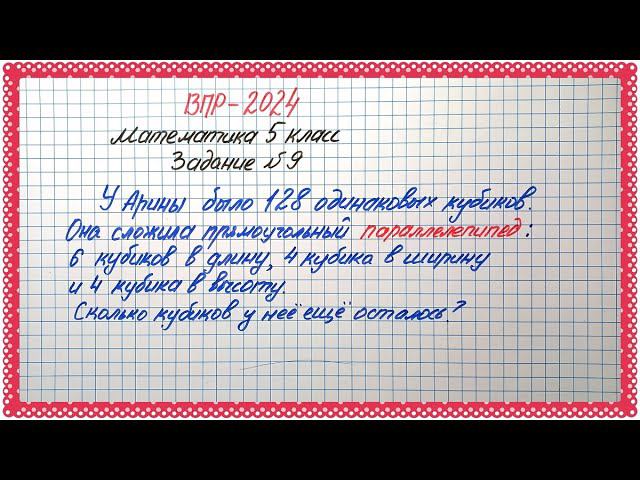 ВПР-2024
Математика 5 класс
Задание №9
У Арины было 128 одинаковых кубиков.
Она сложила прямоугольный параллелепипед:
6 кубиков в длину, 4 кубика в ширину
и 4 кубика в высоту.
Сколько кубиков у неё ещё осталось?